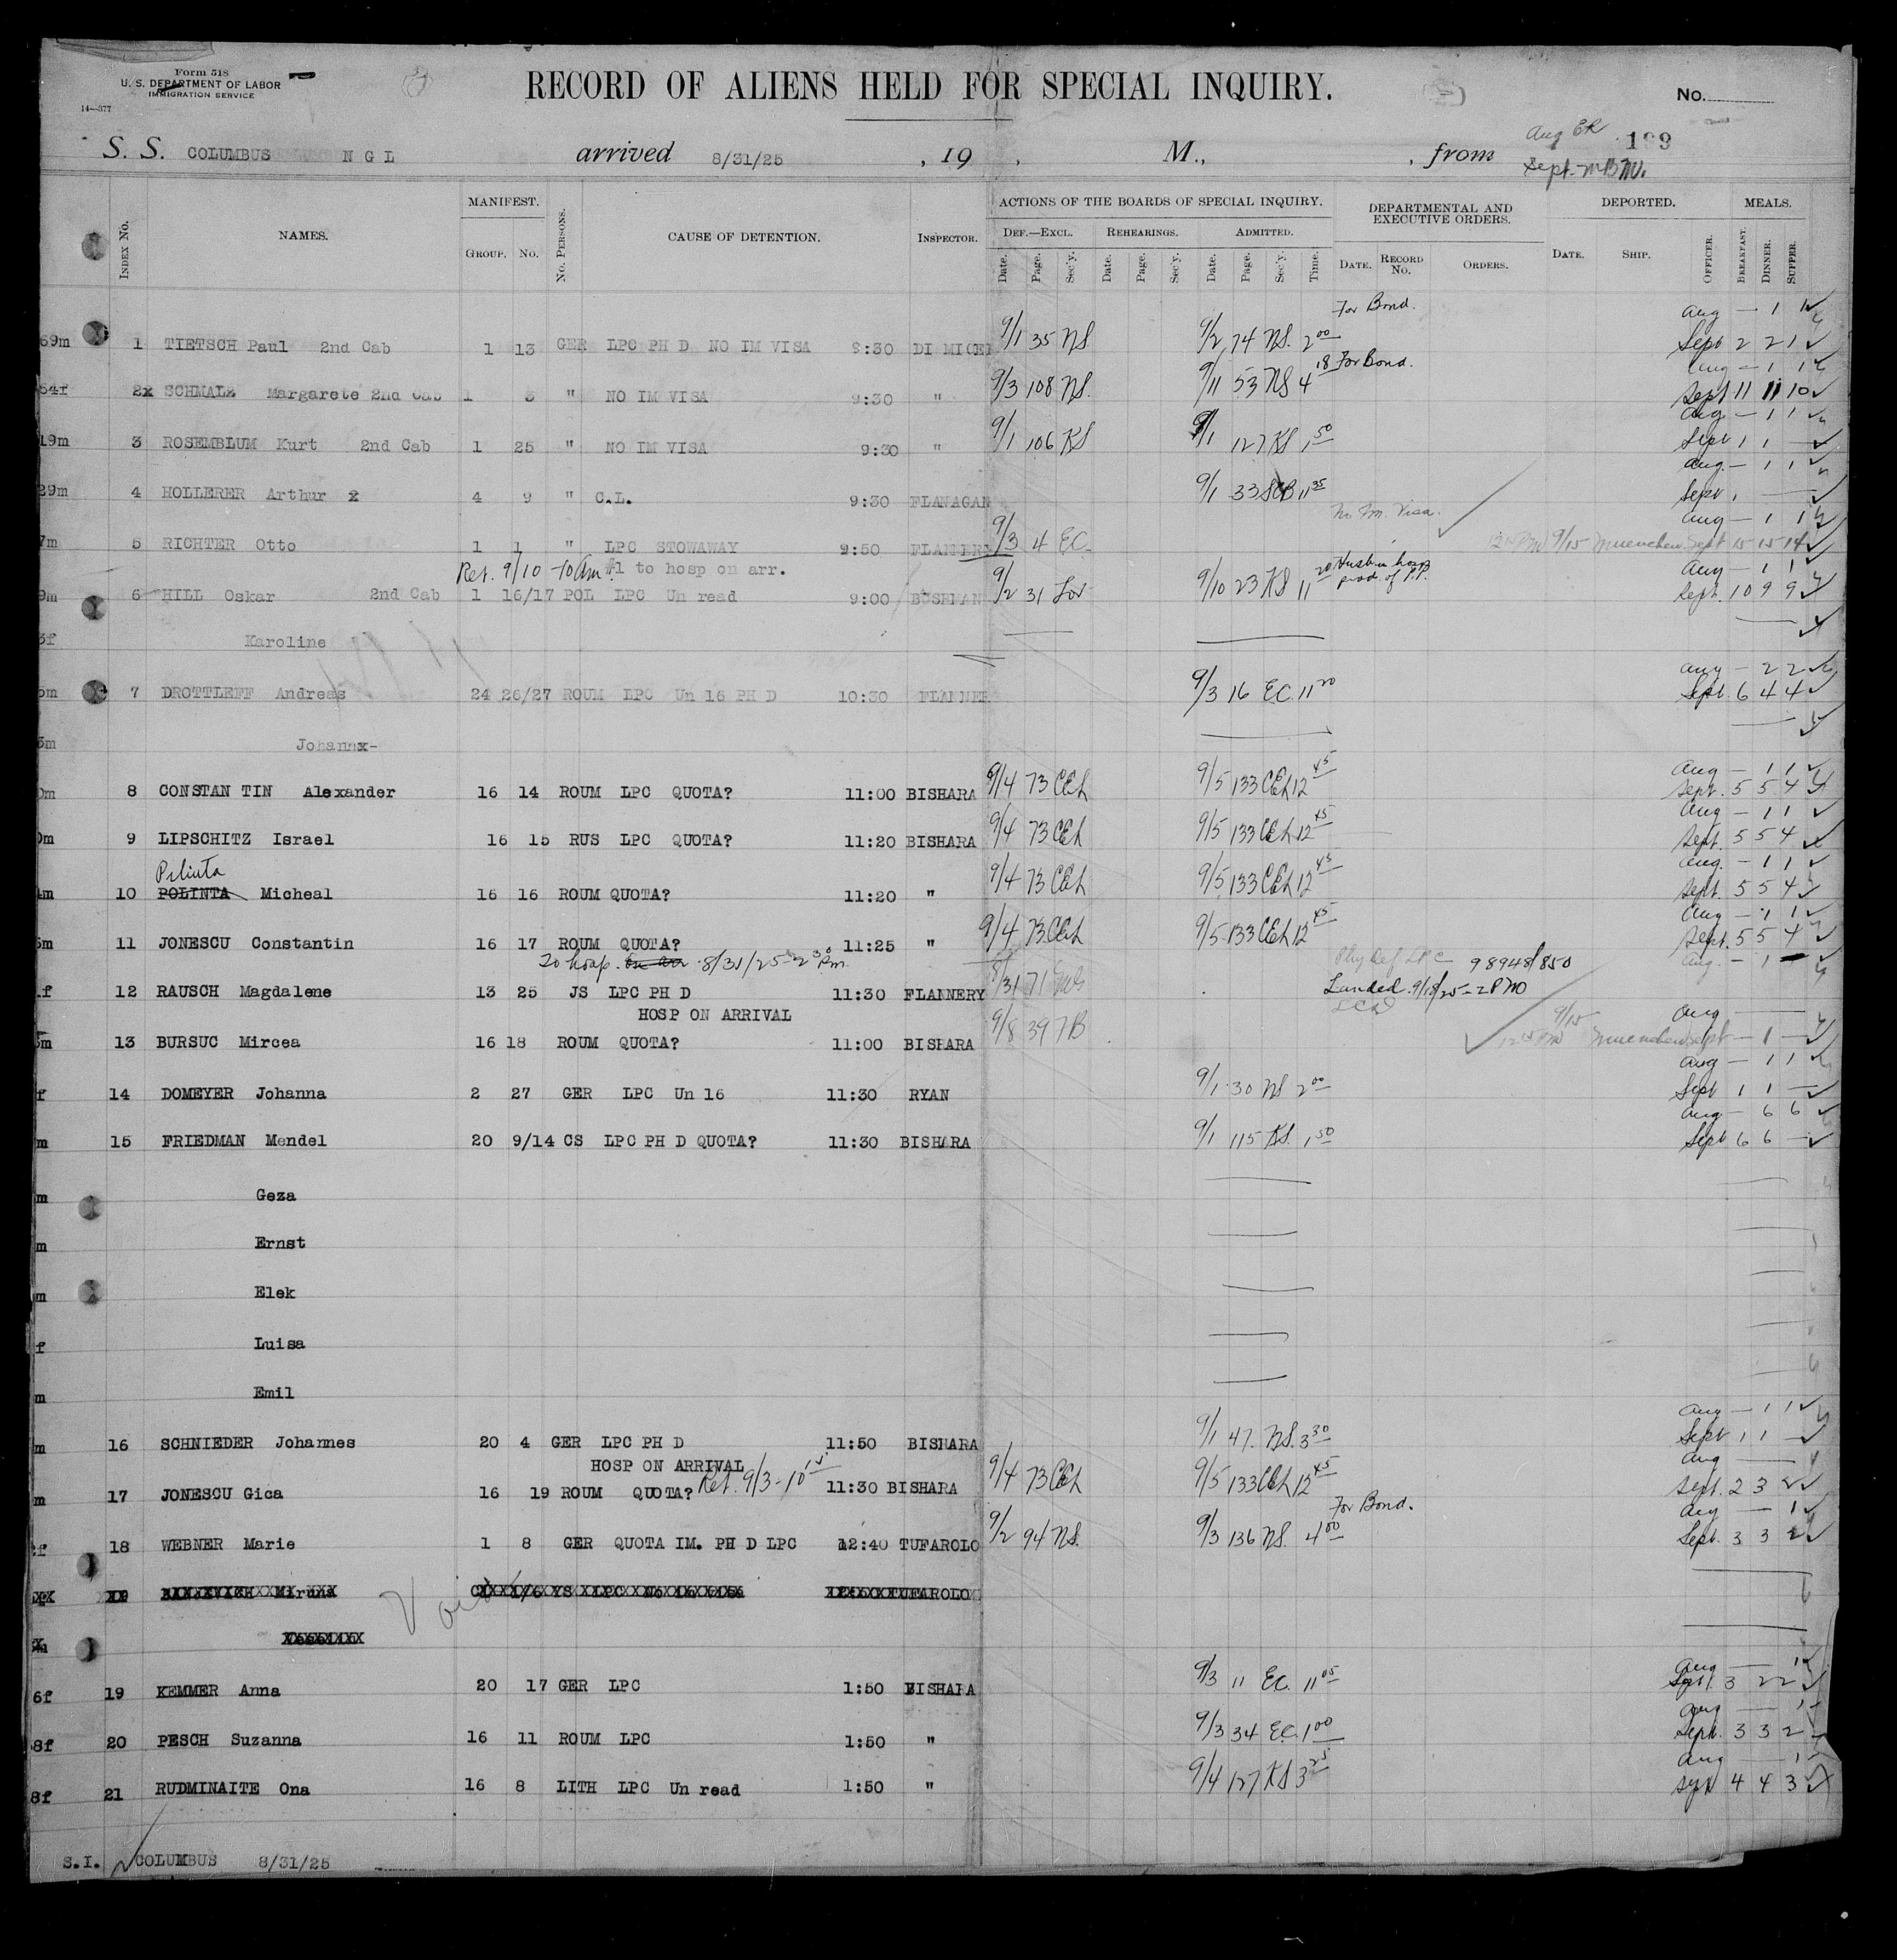 Form 518
U. S. DEPARTMENT OF LABOR
IMMIGRATION SERVICE
14—377
RECORD OF ALIENS HELD FOR SPECIAL INQUIRY.
No.
S. S. COLUMBUS N G L arrived 8/31/25 , 19 , M., , from
Aug ER 199
Sept.
Index No. NAMES. MANIFEST. GROUP. No. No. PERSONS. CAUSE OF DETENTION. INSPECTOR. ACTIONS OF THE BOARDS OF SPECIAL INQUIRY. DEF.—EXCL. Date. Page. Sec'y. REHEARINGS. Date. Page. Sec'y. ADMITTED. Date. Page. Sec'y. Time. DEPARTMENTAL AND EXECUTIVE ORDERS. DATE. RECORD No. ORDERS. DEPORTED. DATE. SHIP. OFFICER. MEALS. BREAKFAST. DINNER. SUPPER.
For Bond. Aug — 1 1
59m 1 TIETSCH Paul 2nd Cab 1 13 GER LPC PH D NO IM VISA 9:30 DI MICE 9/1 35 NS. 9/2 74 NS. 2 00 Sept 2 2 1
For Bond. Aug — 1 1
54f 2x SCHMALZ Margarete 2nd Cab 1 5 " NO IM VISA 9:30 " 9/3 108 NS. 9/11 53 NS 4 18 Sept 11 11 10
Aug — 1 1
19m 3 ROSEMBLUM Kurt 2nd Cab 1 25 " NO IM VISA 9:30 " 9/1 106 KS 9/1 127 KS 1 50 Sept 1 1 —
Aug — 1 1
29m 4 HOLLERER Arthur x 4 9 " C.L. 9:30 FLANAGAN 9/1 33 SCB 11 35 Sept 1 —
No Im. Visa. Aug — 1 1
7m 5 RICHTER Otto 1 1 " LPC STOWAWAY 9:50 FLANNERY 9/3 4 EC. 9/15 Muenchen Sept 15 15 14
Ret. 9/10 - 10 am #1 to hosp on arr. Aug — 1 1
9m 6 HILL Oskar 2nd Cab 1 16/17 POL LPC Un read 9:00 BOSHMAN 9/2 31 9/10 23 KS 11 20 Sept. 10 9 9
3f Karoline
Aug — 2 2
5m 7 DROTTLEFF Andreas 24 26/27 ROUM LPC Un 16 PH D 10:30 FLANNER 9/3 16 EC. 11 20 Sept. 6 4 4
5m Johannx-
Aug — 1 1
0m 8 CONSTAN TIN Alexander 16 14 ROUM LPC QUOTA? 11:00 BISHARA 9/4 73 CEL 9/5 133 CEL 12 45 Sept. 5 5 4
Aug — 1 1
0m 9 LIPSCHITZ Israel 16 15 RUS LPC QUOTA? 11:20 BISHARA 9/4 73 CEL 9/5 133 CEL 12 45 Sept. 5 5 4
Aug. — 1 1
4m 10 POLINTA Micheal 16 16 ROUM QUOTA? 11:20 " 9/4 73 CEL 9/5 133 CEL 12 45 Sept 5 5 4
Aug — 1 1
5m 11 JONESCU Constantin 16 17 ROUM QUOTA? 11:25 " 9/4 73 CEL 9/5 133 CEL 12 45 Sept. 5 5 4
To hosp. on arr 8/31/25 - 2 30 Pm. Phy Def LPC 98948/850 Aug. — 1 —
f 12 RAUSCH Magdalene 13 25 JS LPC PH D 11:30 FLANNERY 8/31 71 Landed 9/18/25 - 2 PM
HOSP ON ARRIVAL 9/15 Aug —
5m 13 BURSUC Mircea 16 18 ROUM QUOTA? 11:00 BISHARA 9/8 39 7B Muenchen Sept — 1 —
Aug — 1 1
f 14 DOMEYER Johanna 2 27 GER LPC Un 16 11:30 RYAN 9/1 30 NS 2 00 Sept 1 1 —
Aug — 6 6
m 15 FRIEDMAN Mendel 20 9/14 CS LPC PH D QUOTA? 11:30 BISHARA 9/1 115 KS. 1 50 Sept 6 6 —
m Geza
m Ernst
m Elek
f Luisa
m Emil
Aug — 1 1
m 16 SCHNIEDER Johannes 20 4 GER LPC PH D 11:50 BISHARA 9/1 47. NS. 3 30 Sept 1 1 —
HOSP ON ARRIVAL Aug —
m 17 JONESCU Gica 16 19 ROUM QUOTA? Ret. 9/3 - 10 11:30 BISHARA 9/4 73 CEL 9/5 133 CEL 12 45 Sept. 2 3 2
For Bond. Aug — 1
f 18 WEBNER Marie 1 8 GER QUOTA IM. PH D LPC 12:40 TUFAROLO 9/2 94 NS. 9/3 136 NS. 4 00 Sept. 3 3 2
19 Miruna YS LPC TUFAROLO
Void
Aug — 1
6f 19 KEMMER Anna 20 17 GER LPC 1:50 BISHARA 9/3 11 EC. 11 05 Sept. 3 2 2
Aug — 1
8f 20 PESCH Suzanna 16 11 ROUM LPC 1:50 " 9/3 34 EC. 1 00 Sept. 3 3 2
Aug — 1
8f 21 RUDMINAITE Ona 16 8 LITH LPC Un read 1:50 " 9/4 127 KS 3 25 Sept 4 4 3
S.I. COLUMBUS 8/31/25